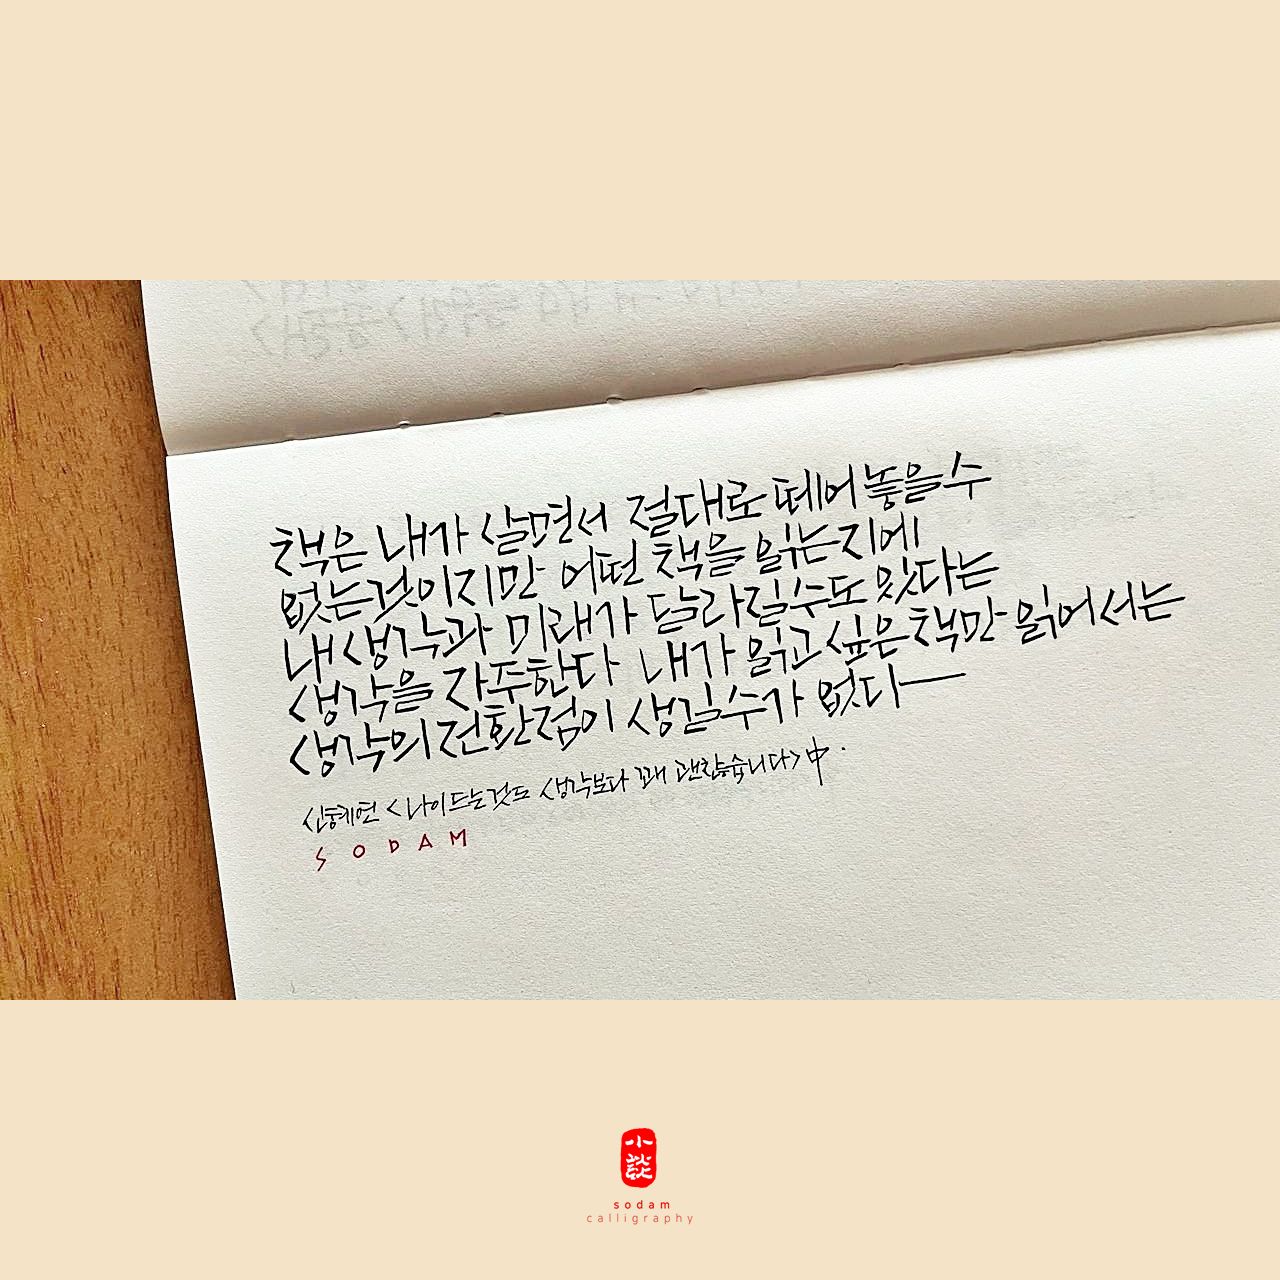 책은 내가 살면서 절대로 떼어놓을수
없는것이지만 어떤 책을 읽는지에
내생각과 미래가 달라질수도 있다는
생각을 자주한다 내가 읽고싶은책만 읽어서는
생각의전환점이 생길수가 없다
신혜연 <나이드는것도 생각보다 꽤 괜찮습니다>中.
SODAM
小談
sodam
calligraphy